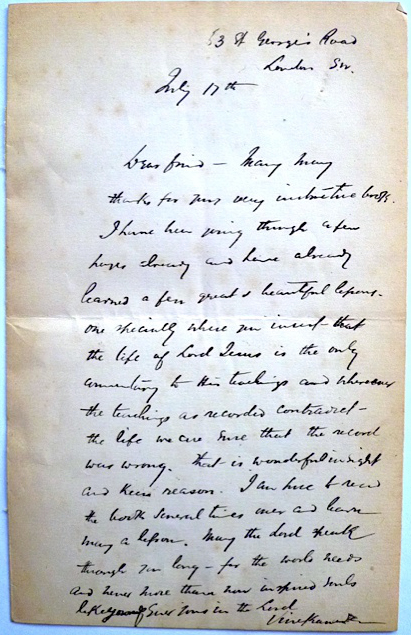 63 St George's Road
London Sw.
July 17th
Dear friend — Many many
thanks for your very instructive books.
I have been going through a few
pages already and have already
learned a few great & beautiful lessons.
one specially where you insist that
the life of Lord Jesus is the only
commentary to His teachings and wherever
the teachings as recorded contradict
the life we are sure that the record
was wrong. That is wonderful insight
and keen reason. I am sure to read
the book several times over and learn
many a lesson. May the Lord speak
through you long — for the world needs
and never more than now inspired souls
like yourself Ever yours in the Lord
Vivekananda